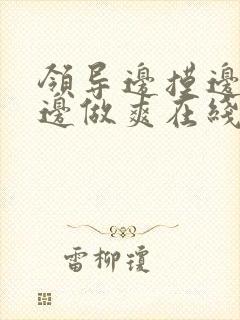 領导邊摸邊
邊做爽在綫
雷柳瓊